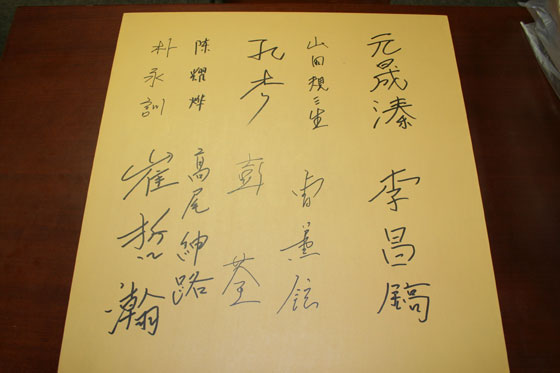 元晟溱
李昌鎬
山田規三生
曺薰鉉
孔杰
彭荃
陳耀燁
高尾紳路
朴永訓
崔哲瀚